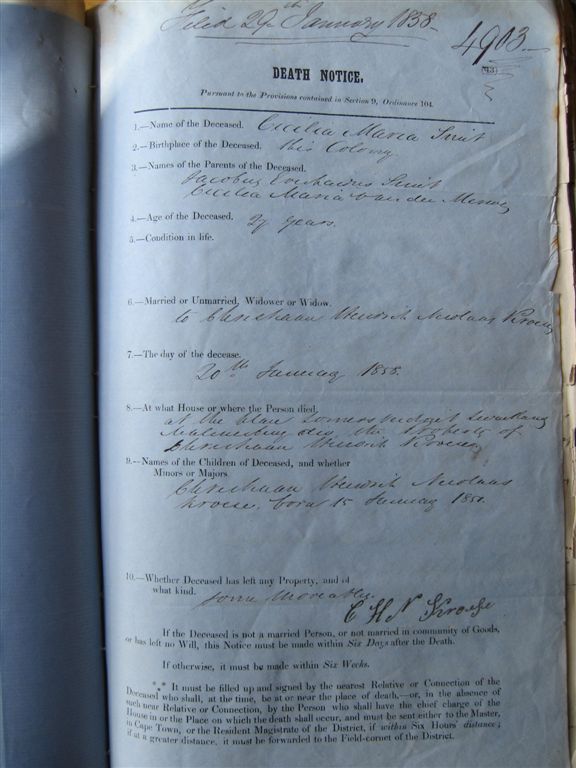 Filed 29th January 1858
4903
(93)
DEATH NOTICE.
Pursuant to the Provisions contained in Section 9, Ordinance 104.
1.—Name of the Deceased. Cecilia Maria Smit
2.—Birthplace of the Deceased. this Colony
3.—Names of the Parents of the Deceased.
Jacobus Smit
Cecilia Maria van der Merwe
4.—Age of the Deceased. 27 years
5.—Condition in life.
6.—Married or Unmarried, Widower or Widow.
to Christiaan Hendrik Nicolaas
7.—The day of the decease.
20th January 1858.
8.—At what House or where the Person died.
at the place
the property of
Christiaan Hendrik
9.—Names of the Children of Deceased, and whether
Minors or Majors.
Christiaan Hendrik Nicolaas
born 15 January
10.—Whether Deceased has left any Property, and of
what kind. some Moveables.
C H N
If the Deceased is not a married Person, or not married in community of Goods,
or has left no Will, this Notice must be made within Six Days after the Death.
If otherwise, it must be made within Six Weeks.
*** It must be filled up and signed by the nearest Relative or Connection of the
Deceased who shall, at the time, be at or near the place of death,—or, in the absence of
such near Relative or Connection, by the Person who shall have the chief charge of the
House in or the Place on which the death shall occur, and must be sent either to the Master,
in Cape Town, or the Resident Magistrate of the District, if within Six Hours' distance;
if at a greater distance, it must be forwarded to the Field-cornet of the District.